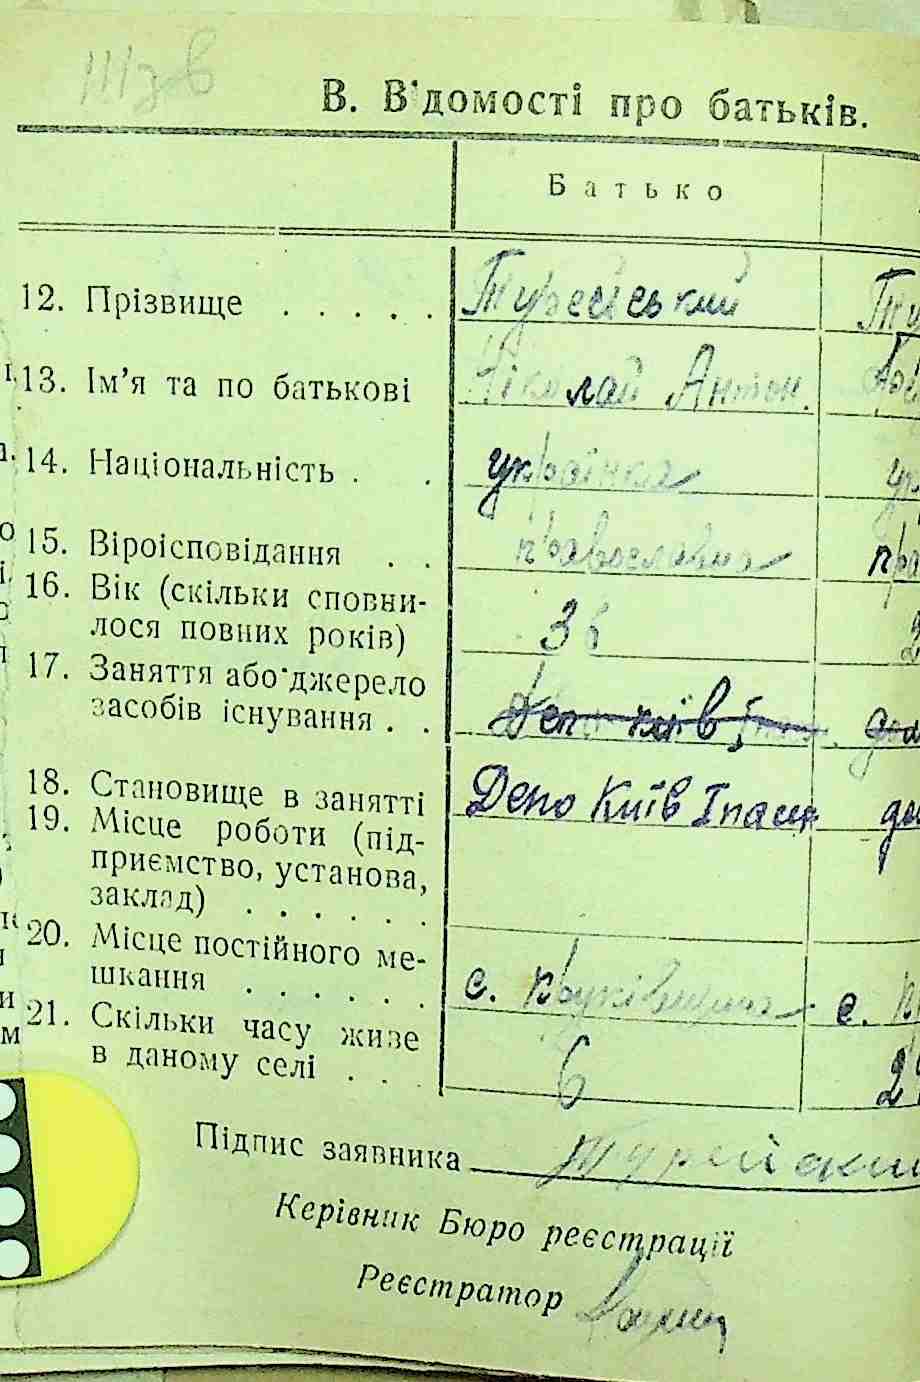 В. Відомості про батьків.
Батько
12. Прізвище . . . . . Турейський Ту
13. Ім’я та по батькові Ніколай Антон.
14. Національність . . українка ук
15. Віроісповідання . . православна пра
16. Вік (скільки сповни- 36 2
лося повних років)
17. Заняття або джерело
засобів існування . . Депо Київ І
18. Становище в занятті Депо Київ Іпасаж
19. Місце роботи (під-
приємство, установа,
заклад) . . . . . .
20. Місце постійного ме-
шкання . . . . . . с. Крюківщина с. К
21. Скільки часу живе
в даному селі . . . 6 2
Підпис заявника Турейский
Керівник Бюро реєстрації
Реєстратор